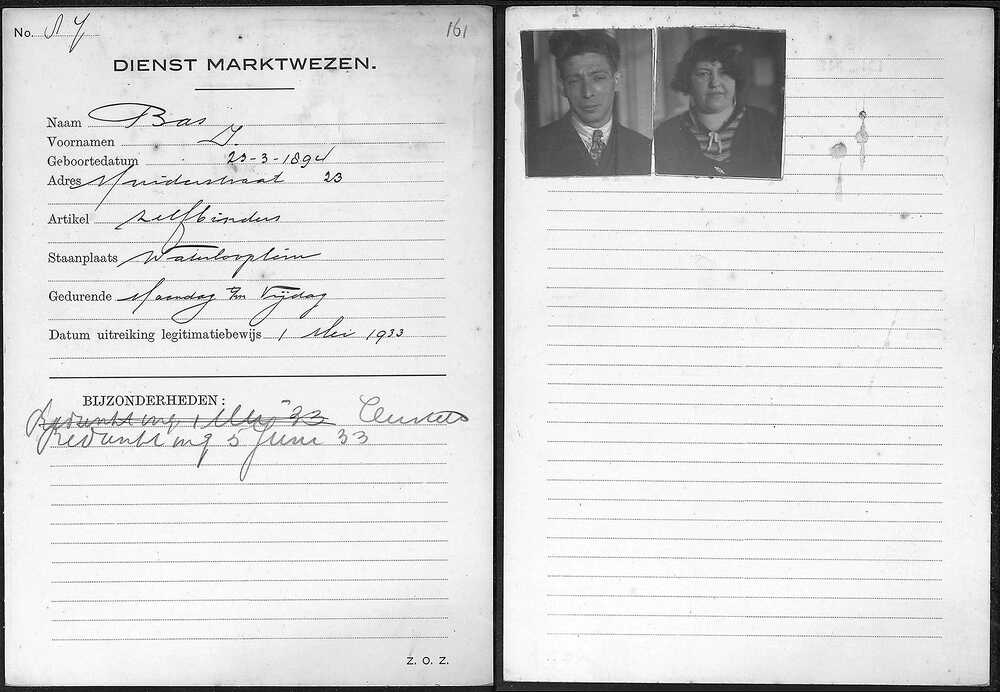 No. 87
161
DIENST MARKTWEZEN.
Naam Bas
Voornamen I.
Geboortedatum 23-3-1894
Adres Muiderstraat 23
Artikel zelfbinders
Staanplaats Waterlooplein
Gedurende Maandag t/m Vrijdag
Datum uitreiking legitimatiebewijs 1 Mei 1933
BIJZONDERHEDEN:
1 Mei 33
5 Juni 33
Z. O. Z.